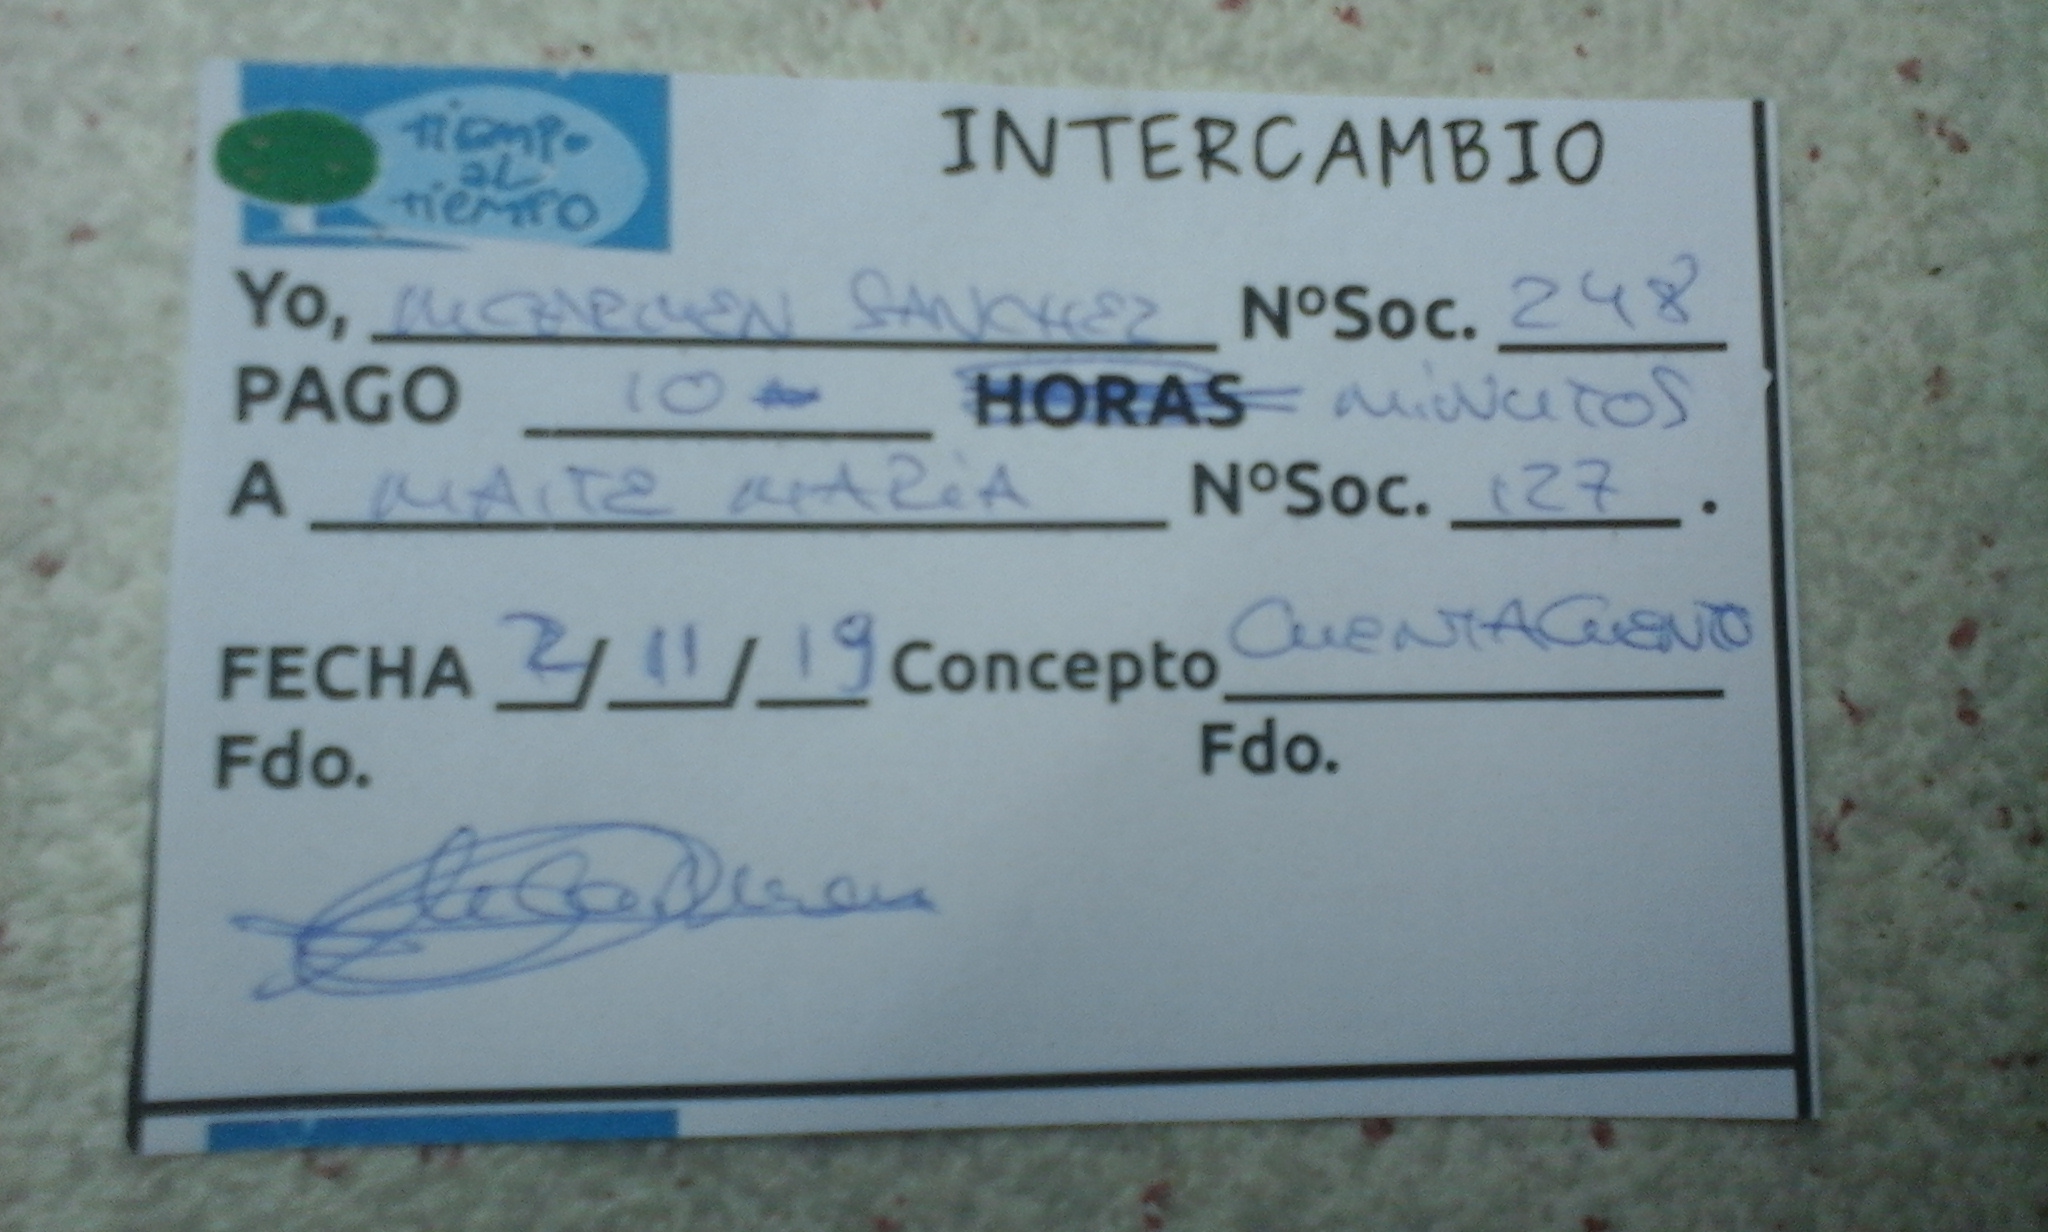 tiempo
al
tiempo
INTERCAMBIO
Yo, Mª CARMEN SANCHEZ NºSoc. 248
PAGO 10 HORAS MINUTOS
A MAITE MARIA NºSoc. 127 .
FECHA 2/11/19 Concepto CUENTACUENTO
Fdo. Fdo.